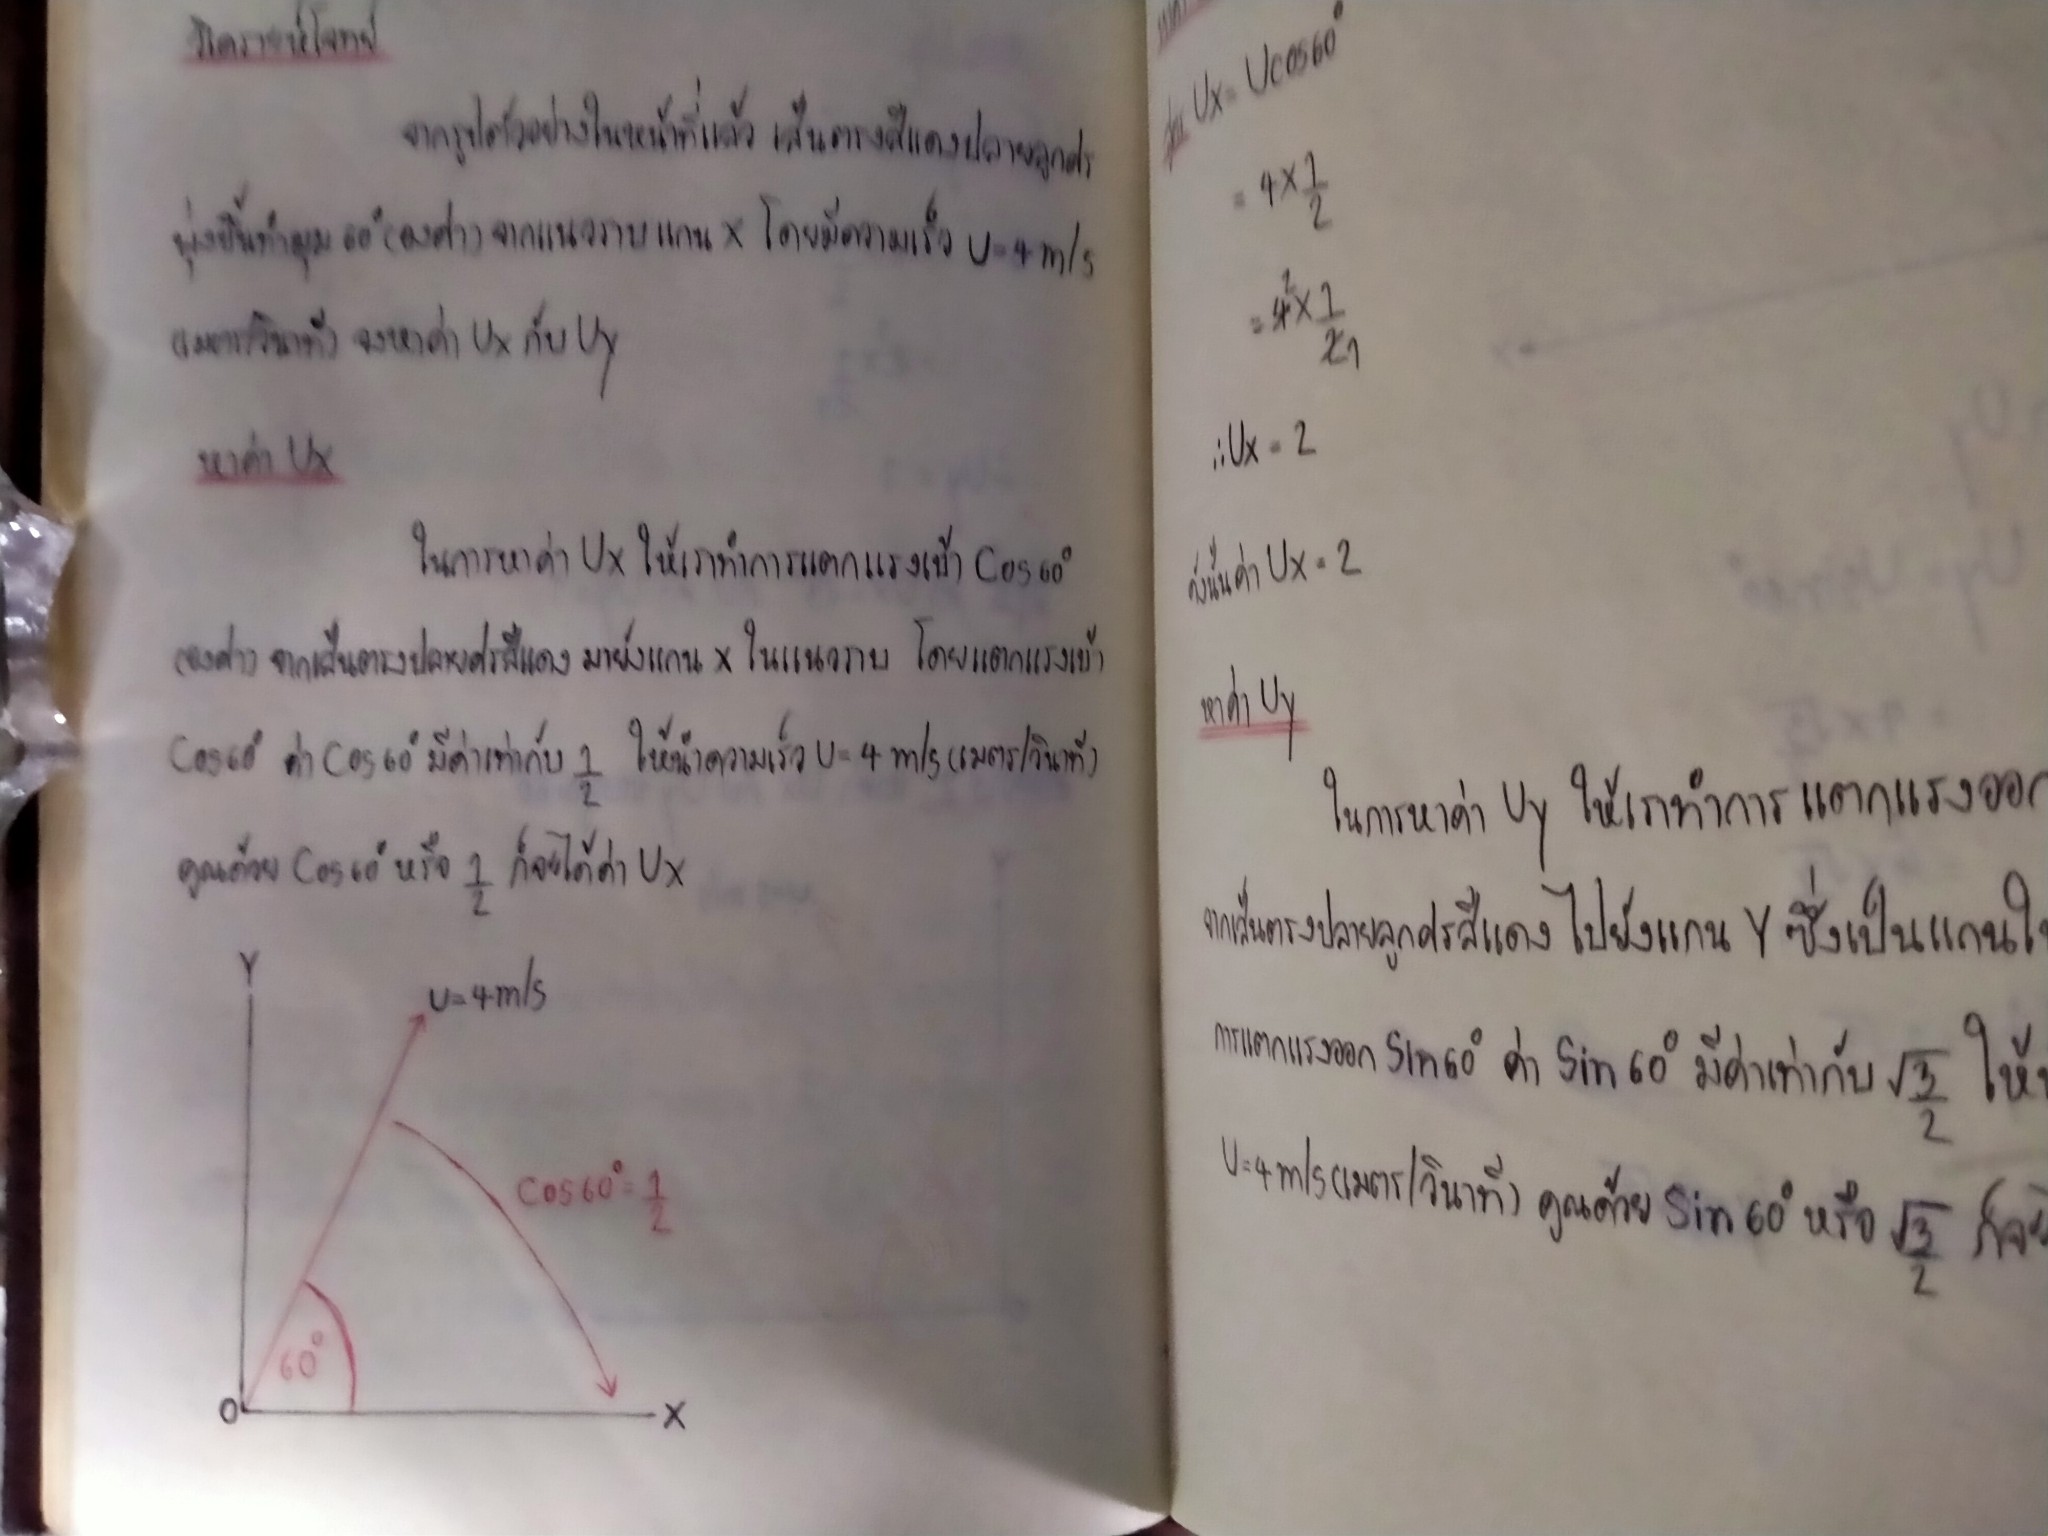 วิเคราะห์โจทย์
จากรูปตัวอย่างในหน้าที่แล้ว เส้นตรงสีแดงปลายลูกศร
พุ่งขึ้นทำมุม 60° (องศา) จากแนวราบแกน X โดยมีความเร็ว U=4 m/s
(เมตร/วินาที) จงหาค่า Ux กับ Uy
หาค่า Ux
ในการหาค่า Ux ให้เราทำการแตกแรงเข้า Cos60°
(องศา) จากเส้นตรงปลายศรสีแดง มายังแกน X ในแนวราบ โดยแตกแรงเข้า
Cos60° ค่า Cos60° มีค่าเท่ากับ 1/2 ให้นำความเร็ว U=4 m/s (เมตร/วินาที)
คูณด้วย Cos60° หรือ 1/2 ก็จะได้ค่า Ux
Y
U=4m/s
Cos60°=1/2
60°
O
X
สูตร Ux = Ucos60°
= 4×1/2
= 4²×1/2 1
∴Ux = 2
ดังนั้นค่า Ux = 2
หาค่า Uy
ในการหาค่า Uy ให้เราทำการแตกแรงออก
จากเส้นตรงปลายลูกศรสีแดง ไปยังแกน Y ซึ่งเป็นแกนใน
การแตกแรงออก Sin60° ค่า Sin60° มีค่าเท่ากับ √3/2 ให้
U=4m/s (เมตร/วินาที) คูณด้วย Sin60° หรือ √3/2 ก็จะ